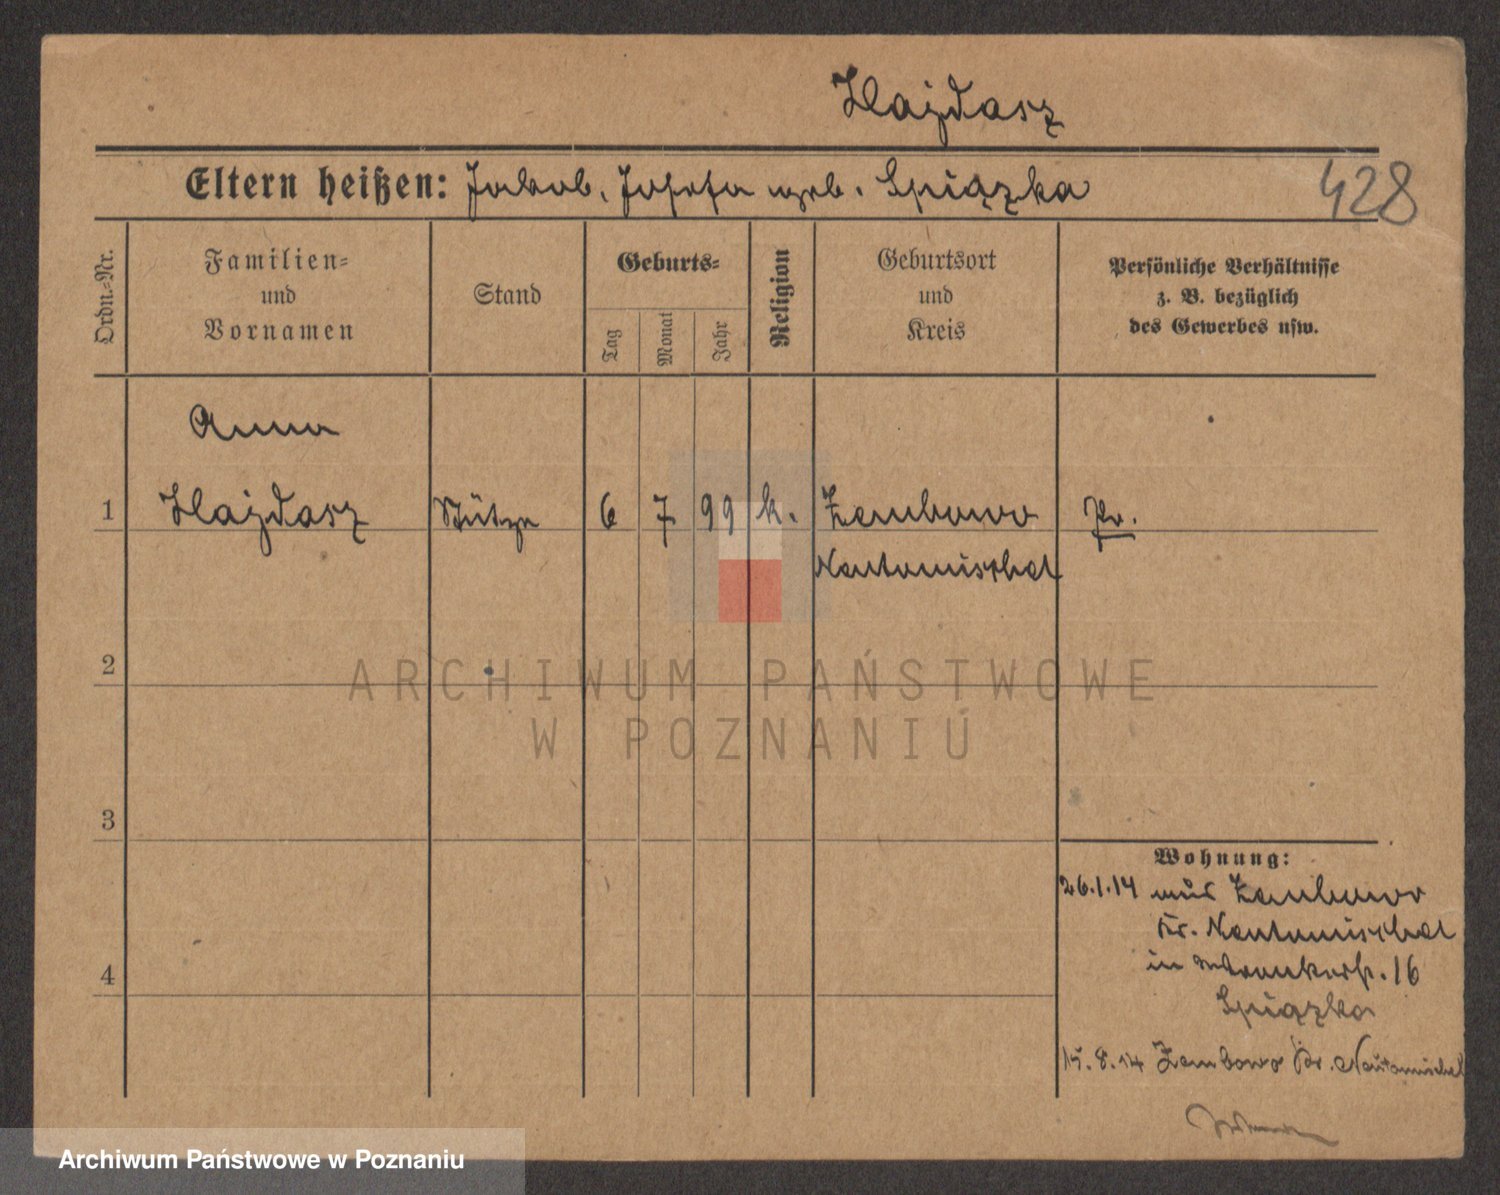 Hajdasz
Eltern heißen: Jakob, Josefa geb. Spiączka
428
Ordn.-Nr.
Familien-
und
Vornamen
Stand
Geburts-
Tag
Monat
Jahr
Religion
Geburtsort
und
Kreis
Persönliche Verhältnisse
z. B. bezüglich
des Gewerbes usw.
Anna
1 Hajdasz Stütze 6 7 99 k. Zembowo Pr.
Neutomischel
2
ARCHIWUM PAŃSTWOWE
W POZNANIU
3
Wohnung:
26.1.14 aus Zembowo
Kr. Neutomischel
4
in 16
Spiączka
15.8.14 Zembowo Kr. Neutomischel
Archiwum Państwowe w Poznaniu